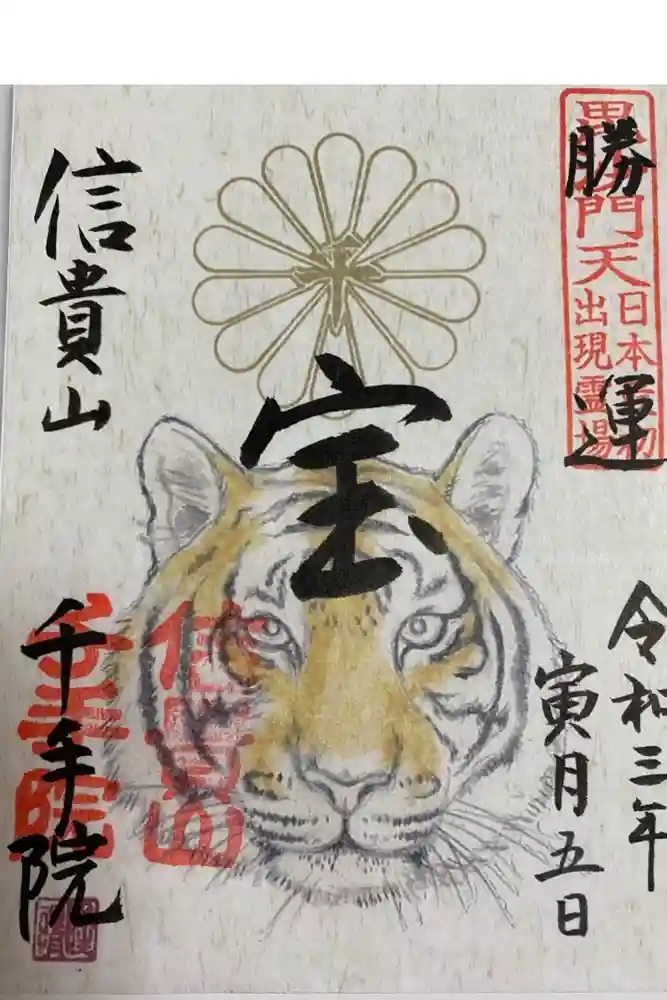 勝運
毘沙門天
日本最初
出現霊場
令和三年
寅月五日
宝
信貴山
信貴山
千手院
千手院